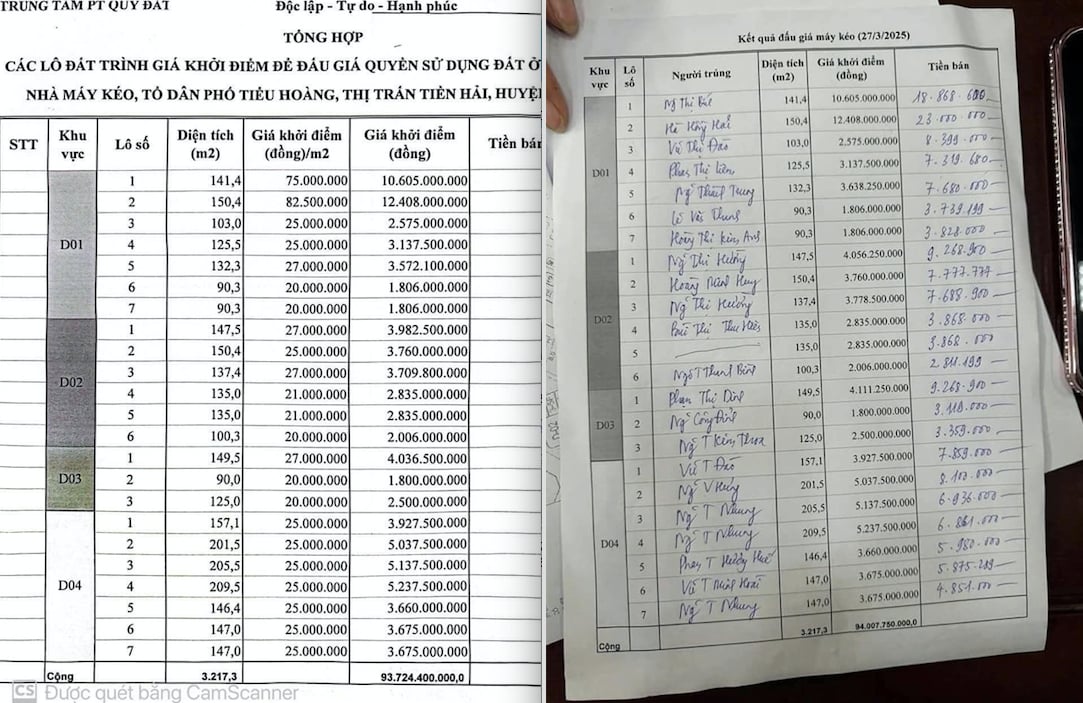 TRUNG TÂM PT QUỸ ĐẤT
Độc lập - Tự do - Hạnh phúc
TỔNG HỢP
CÁC LÔ ĐẤT TRÌNH GIÁ KHỞI ĐIỂM ĐỂ ĐẤU GIÁ QUYỀN SỬ DỤNG ĐẤT Ở
NHÀ MÁY KÉO, TỔ DÂN PHỐ TIỂU HOÀNG, THỊ TRẤN TIỀN HẢI, HUYỆN
STT Khu vực Lô số Diện tích (m2) Giá khởi điểm (đồng)/m2 Giá khởi điểm (đồng) Tiền bán
D01
1 141,4 75.000.000 10.605.000.000
2 150,4 82.500.000 12.408.000.000
3 103,0 25.000.000 2.575.000.000
4 125,5 25.000.000 3.137.500.000
5 132,3 27.000.000 3.572.100.000
6 90,3 20.000.000 1.806.000.000
7 90,3 20.000.000 1.806.000.000
D02
1 147,5 27.000.000 3.982.500.000
2 150,4 25.000.000 3.760.000.000
3 137,4 27.000.000 3.709.800.000
4 135,0 21.000.000 2.835.000.000
5 135,0 21.000.000 2.835.000.000
6 100,3 20.000.000 2.006.000.000
D03
1 149,5 27.000.000 4.036.500.000
2 90,0 20.000.000 1.800.000.000
3 125,0 20.000.000 2.500.000.000
D04
1 157,1 25.000.000 3.927.500.000
2 201,5 25.000.000 5.037.500.000
3 205,5 25.000.000 5.137.500.000
4 209,5 25.000.000 5.237.500.000
5 146,4 25.000.000 3.660.000.000
6 147,0 25.000.000 3.675.000.000
7 147,0 25.000.000 3.675.000.000
Cộng 3.217,3 93.724.400.000,0
CS Được quét bằng CamScanner
Kết quả đấu giá máy kéo (27/3/2025)
Khu vực Lô số Người trúng Diện tích (m2) Giá khởi điểm (đồng) Tiền bán
D01
1 Ng Thị 141,4 10.605.000.000 18.868.600
2 Hồng Hải 150,4 12.408.000.000 23.000.000
3 Vũ Thị Đào 103,0 2.575.000.000 8.399.000
4 Phạm Thị Liên 125,5 3.137.500.000 7.319.680
5 Ng Thành Trung 132,3 3.638.250.000 7.680.000
6 Lê Văn Thung 90,3 1.806.000.000 3.739.199
7 Hoàng Thị Kim Anh 90,3 1.806.000.000 3.828.000
D02
1 Ng Thị Hường 147,5 4.056.250.000 9.268.900
2 Hoàng Minh Huy 150,4 3.760.000.000 7.777.777
3 Ng Thị Hường 137,4 3.778.500.000 7.688.900
4 Thị Thu Hiền 135,0 2.835.000.000 3.868.000
5 135,0 2.835.000.000 3.868.000
6 Ngô T Thanh Bình 100,3 2.006.000.000 2.811.199
D03
1 Phạm Thị 149,5 4.111.250.000 9.268.900
2 Ng Công Định 90,0 1.800.000.000 3.119.000
3 Ng T Kim Thoa 125,0 2.500.000.000 3.359.000
D04
1 Vũ T Đào 157,1 3.927.500.000 7.859.000
2 Ng V Hưng 201,5 5.037.500.000 8.100.000
3 Ng T Nhung 205,5 5.137.500.000 6.936.000
4 Ng T Nhung 209,5 5.237.500.000 6.861.000
5 Phạm T Hương Huế 146,4 3.660.000.000 5.980.000
6 Vũ T Minh Hoài 147,0 3.675.000.000 5.875.289
7 Ng T Nhung 147,0 3.675.000.000 4.851.000
Cộng 3.217,3 94.007.750.000,0